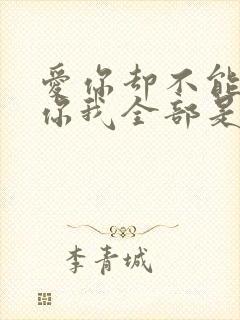 愛你却不能
你我全部是
李青城